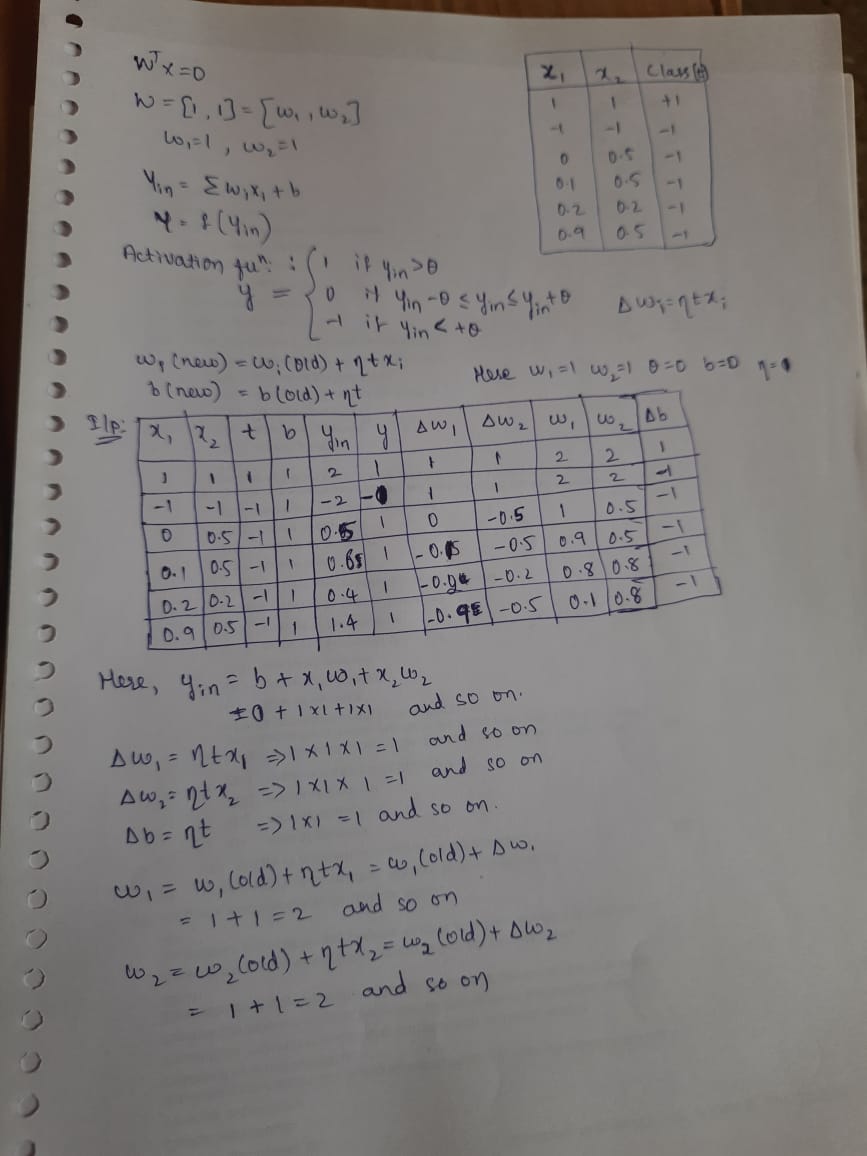 WᵀX=0
W = [1, 1] = [w₁, w₂]
w₁=1, w₂=1
Yin = Σw₁x₁ + b
y = f(Yin)
x₁ x₂ Class(t)
1 1 +1
-1 -1 -1
0 0.5 -1
0.1 0.5 -1
0.2 0.2 -1
0.9 0.5 -1
Activation fuⁿ: : { 1 if yin>θ
y = 0 if yin-θ ≤ yin ≤ yin+θ Δwᵢ=ηtxᵢ
-1 if yin<+θ
wᵢ(new) = wᵢ(old) + ηtxᵢ
Here w₁=1 w₂=1 θ=0 b=0
b(new) = b(old) + ηt
I/p:
x₁ x₂ t b yin y Δw₁ Δw₂ w₁ w₂ Δb
1 1 1 1 2 1 1 1 2 2 1
-1 -1 -1 1 -2 1 1 2 2 -1
0 0.5 -1 1 1 0 -0.5 1 0.5 -1
0.1 0.5 -1 1 0.65 1 -0.5 0.9 0.5 -1
0.2 0.2 -1 1 0.4 1 -0.2 0.8 0.8 -1
0.9 0.5 -1 1 1.4 1 -0.5 0.1 0.8 -1
Here, yin = b + x₁w₁ + x₂w₂
= 0 + 1x1 + 1x1 and so on.
Δw₁ = ηtx₁ => 1 x 1 x 1 = 1 and so on
Δw₂ = ηtx₂ => 1x1x 1 = 1 and so on
Δb = ηt => 1x1 = 1 and so on.
w₁ = w₁(old) + ηtx₁ = w₁(old) + Δw₁
= 1 + 1 = 2 and so on
w₂ = w₂(old) + ηtx₂ = w₂(old) + Δw₂
= 1 + 1 = 2 and so on